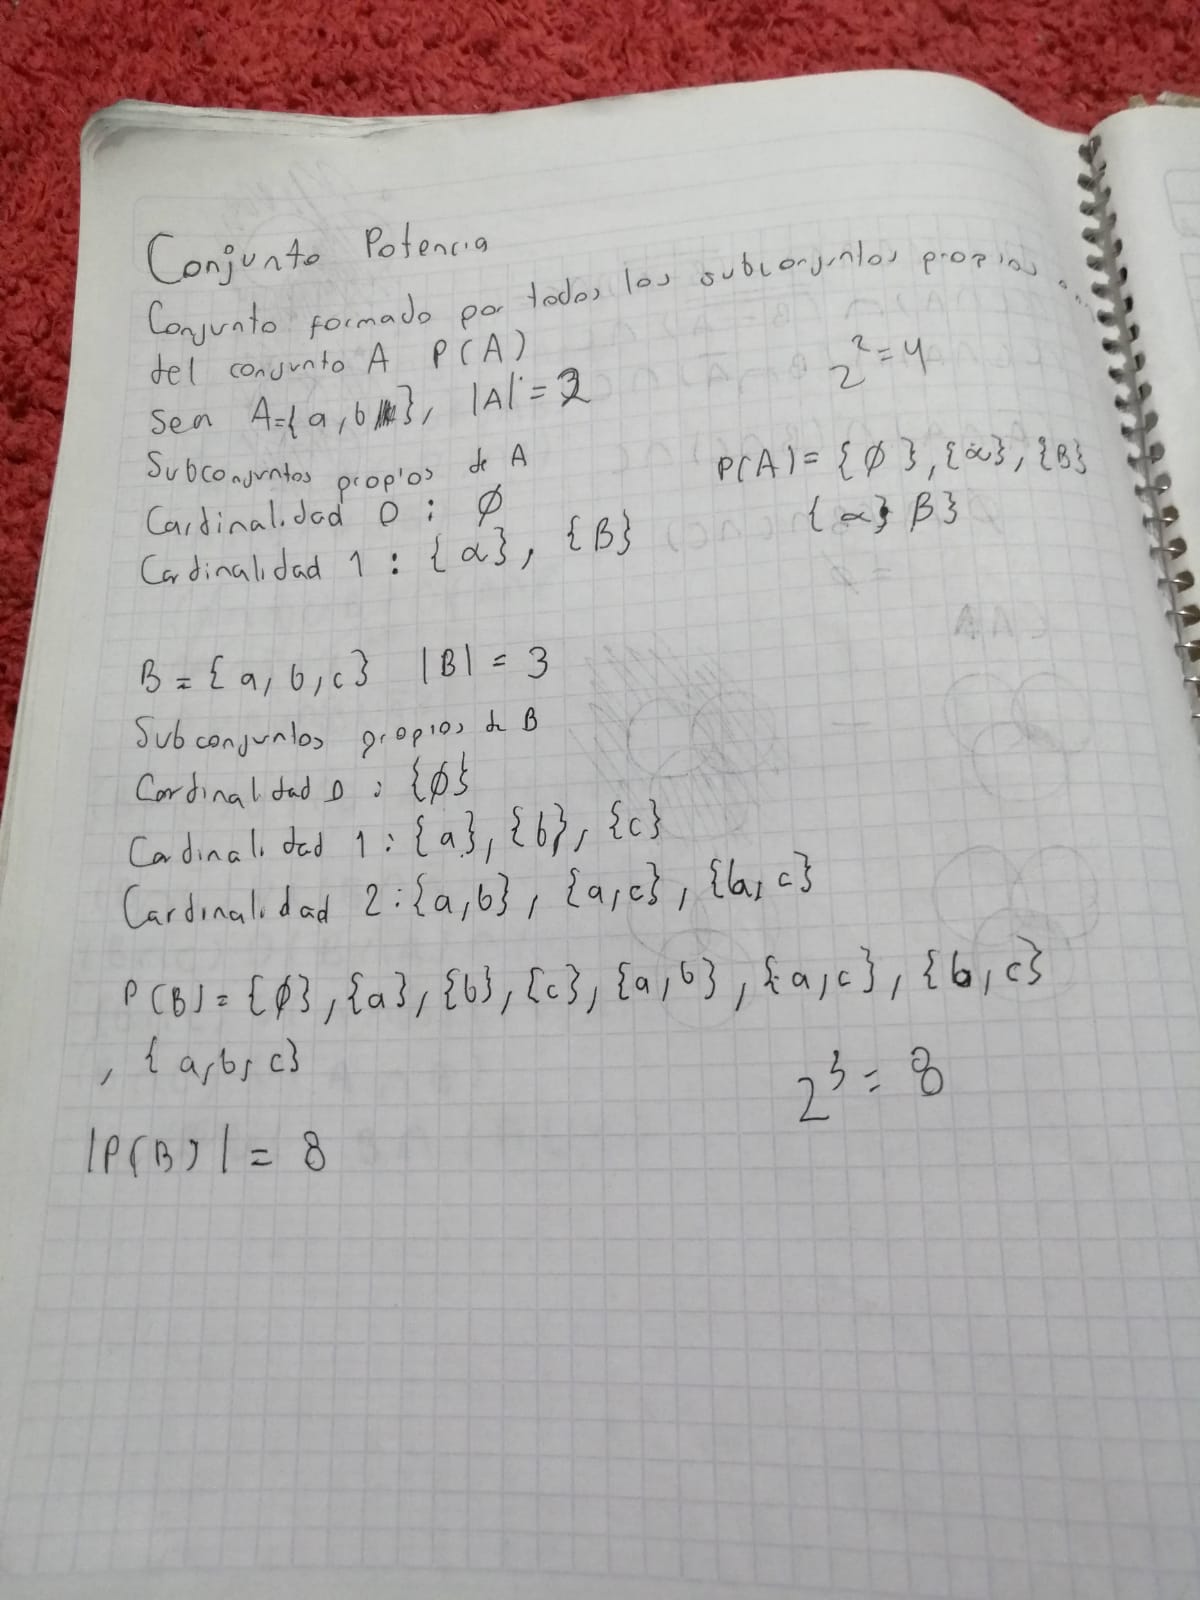 Conjunto Potencia
Conjunto formado por todos los subconjuntos propios
del conjunto A P(A)
2² = 4
Sea A={a,b}, |A| = 2
Subconjuntos propios de A
P(A)= {∅}, {α}, {B}
{α} β}
Cardinalidad 0 : ∅
Cardinalidad 1 : {α}, {B}
B = {a, b, c} |B| = 3
Subconjuntos propios de B
Cardinalidad 0 : {∅}
Cardinalidad 1 : {a}, {b}, {c}
Cardinalidad 2 : {a,b}, {a,c}, {b, c}
P(B) = {∅}, {a}, {b}, {c}, {a,b}, {a,c}, {b,c}
, {a,b, c}
2³ = 8
|P(B)| = 8